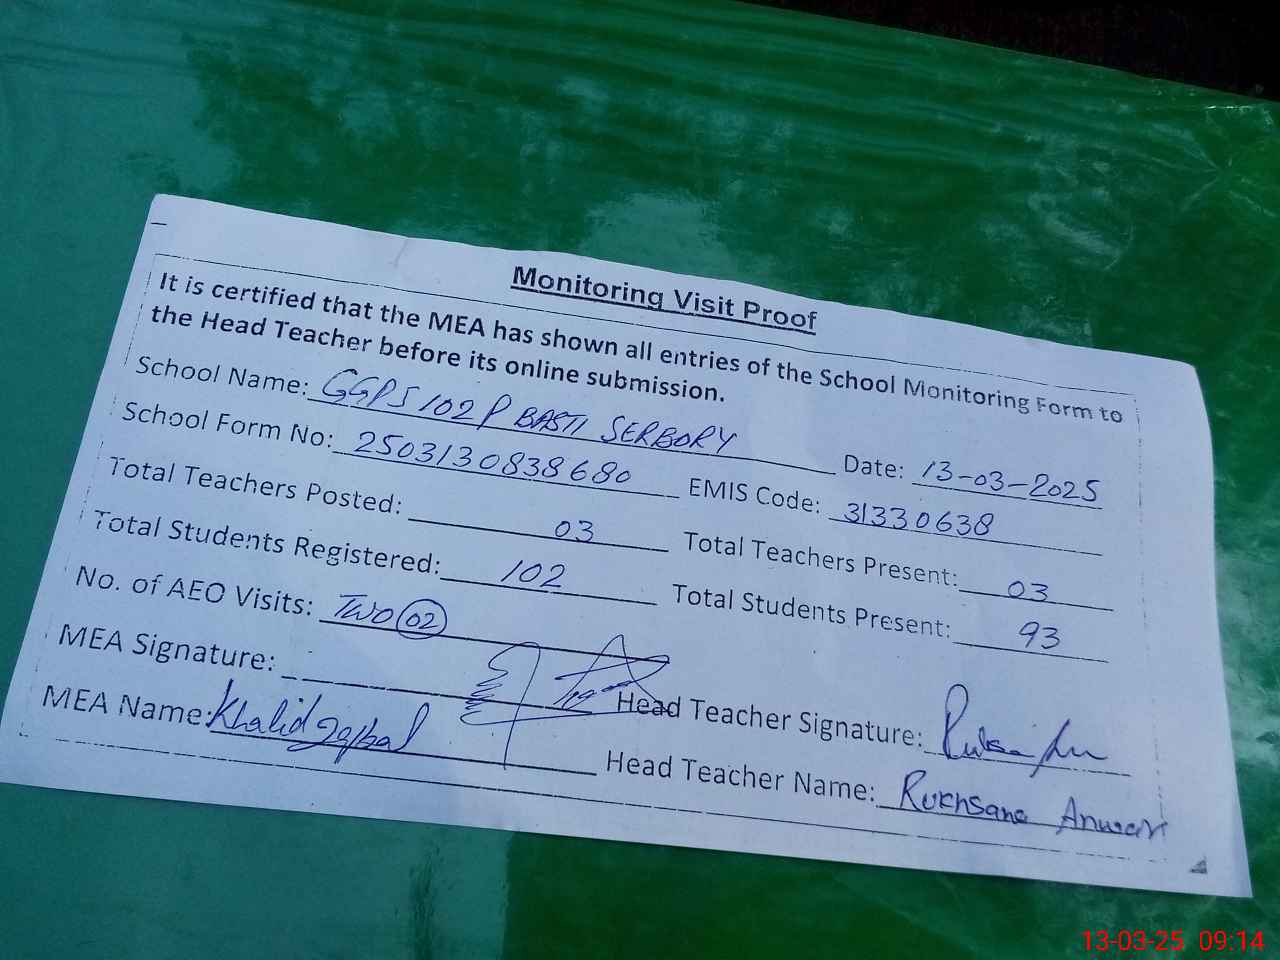 Monitoring Visit Proof
It is certified that the MEA has shown all entries of the School Monitoring Form to
the Head Teacher before its online submission.
School Name: GGPS 102 P BASTI SERBORY Date: 13-03-2025
School Form No: 2503130838680 EMIS Code: 31330638
Total Teachers Posted: 03 Total Teachers Present: 03
Total Students Registered: 102 Total Students Present: 93
No. of AEO Visits: Two 02
MEA Signature: Head Teacher Signature:
MEA Name: Khalid Iqbal Head Teacher Name: Rukhsana Anwar
13-03-25 09:14